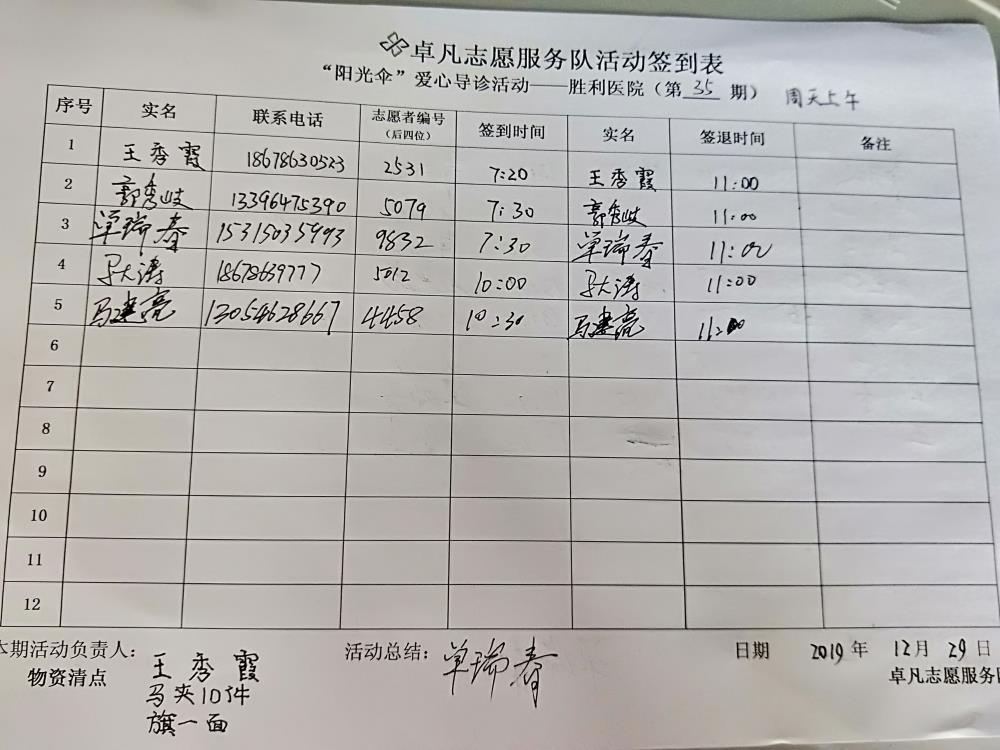 卓凡志愿服务队活动签到表
“阳光伞”爱心导诊活动——胜利医院（第 35 期） 周天上午
序号 实名 联系电话 志愿者编号（后四位） 签到时间 实名 签退时间 备注
1 王秀霞 18678630523 2531 7:20 王秀霞 11:00
2 郭秀岐 13396475390 5079 7:30 郭秀岐 11:00
3 单瑞春 15315035993 9832 7:30 单瑞春 11:00
4 马大涛 18678639777 5012 10:00 马大涛 11:00
5 马建亮 13054628667 4458 10:30 马建亮 11:00
6
7
8
9
10
11
12
本期活动负责人： 王秀霞 活动总结：单瑞春 日期 2019年 12月 29日
物资清点 马夹10件 卓凡志愿服务队
旗一面